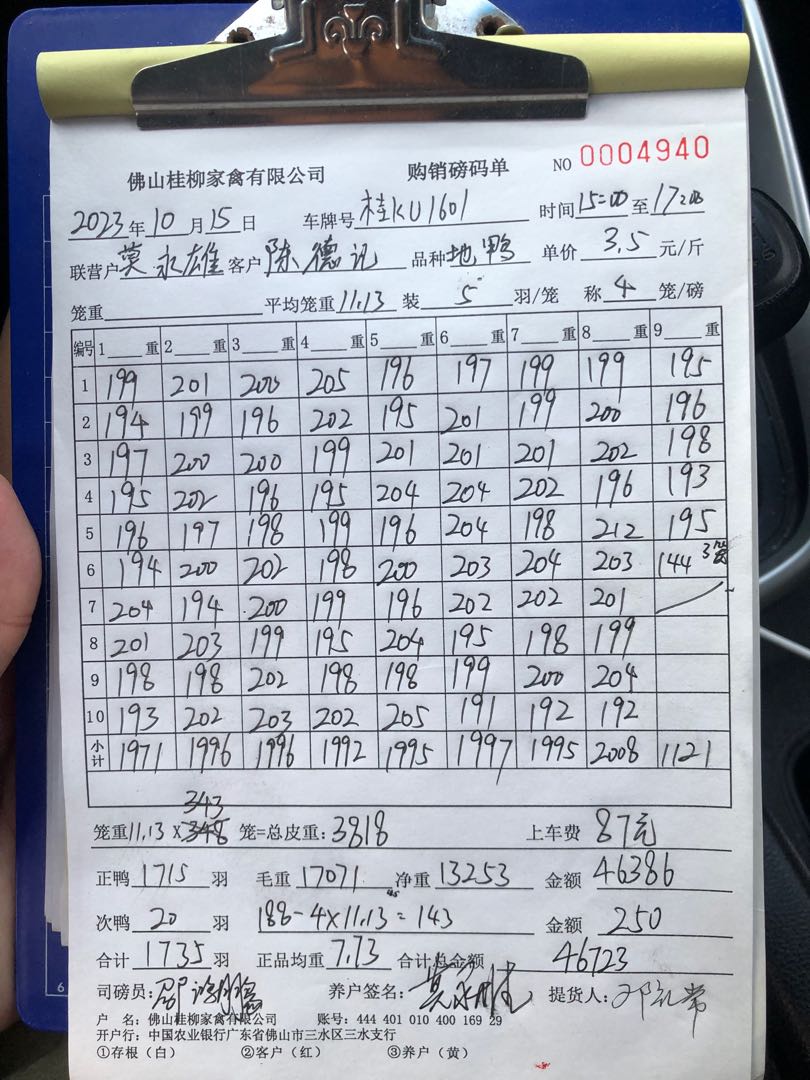 佛山桂柳家禽有限公司 购销磅码单 NO 0004940
2023年10月15日 车牌号 桂KU1601 时间15:00至17:00
联营户 莫永雄 客户 陈德记 品种 地鸭 单价 3.5 元/斤
笼重 平均笼重 11.13 装 5 羽/笼 称 4 笼/磅
编号 1 重 2 重 3 重 4 重 5 重 6 重 7 重 8 重 9 重
1 199 201 200 205 196 197 199 199 195
2 194 199 196 202 195 201 199 200 196
3 197 200 200 199 201 201 201 202 198
4 195 202 196 195 204 204 202 196 193
5 196 197 198 199 196 204 198 212 195
6 194 200 202 198 200 203 204 203 144 3笼
7 204 194 200 199 196 202 202 201
8 201 203 199 195 204 195 198 199
9 198 198 202 198 198 199 200 204
10 193 202 203 202 205 191 192 192
小计 1971 1996 1996 1992 1995 1997 1995 2008 1121
343
笼重11.13 X 348 笼=总皮重: 3818 上车费 87元
正鸭 1715 羽 毛重 17071 净重 13253 金额 46386
次鸭 20 羽 188-4×11.13=143 金额 250
合计 1735 羽 正品均重 7.73 合计总金额 46723
司磅员: 养户签名: 提货人:
户 名: 佛山桂柳家禽有限公司 账号: 444 401 010 400 169 29
开户行: 中国农业银行广东省佛山市三水区三水支行
①存根（白） ②客户（红） ③养户（黄）